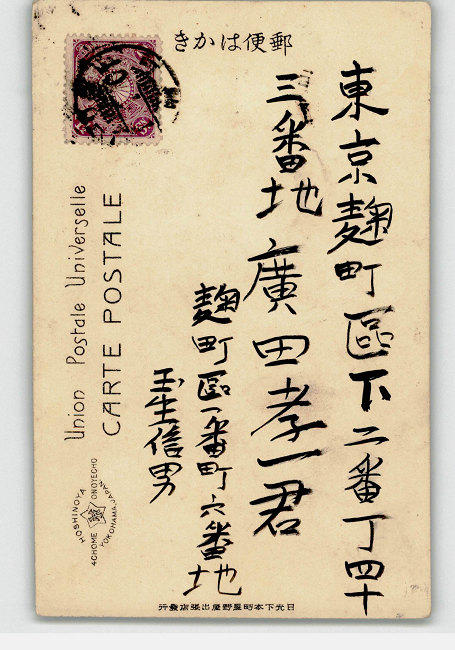 郵便はかき
東京麹町區下二番丁四十
三番地
廣田孝一君
麹町區一番町六番地
玉生信男
Union Postale Universelle
CARTE POSTALE
HOSHINOYA
4CHOME ONOYECHO
YOKOHAMA, JAPAN
日光下本町星野屋出張店發行